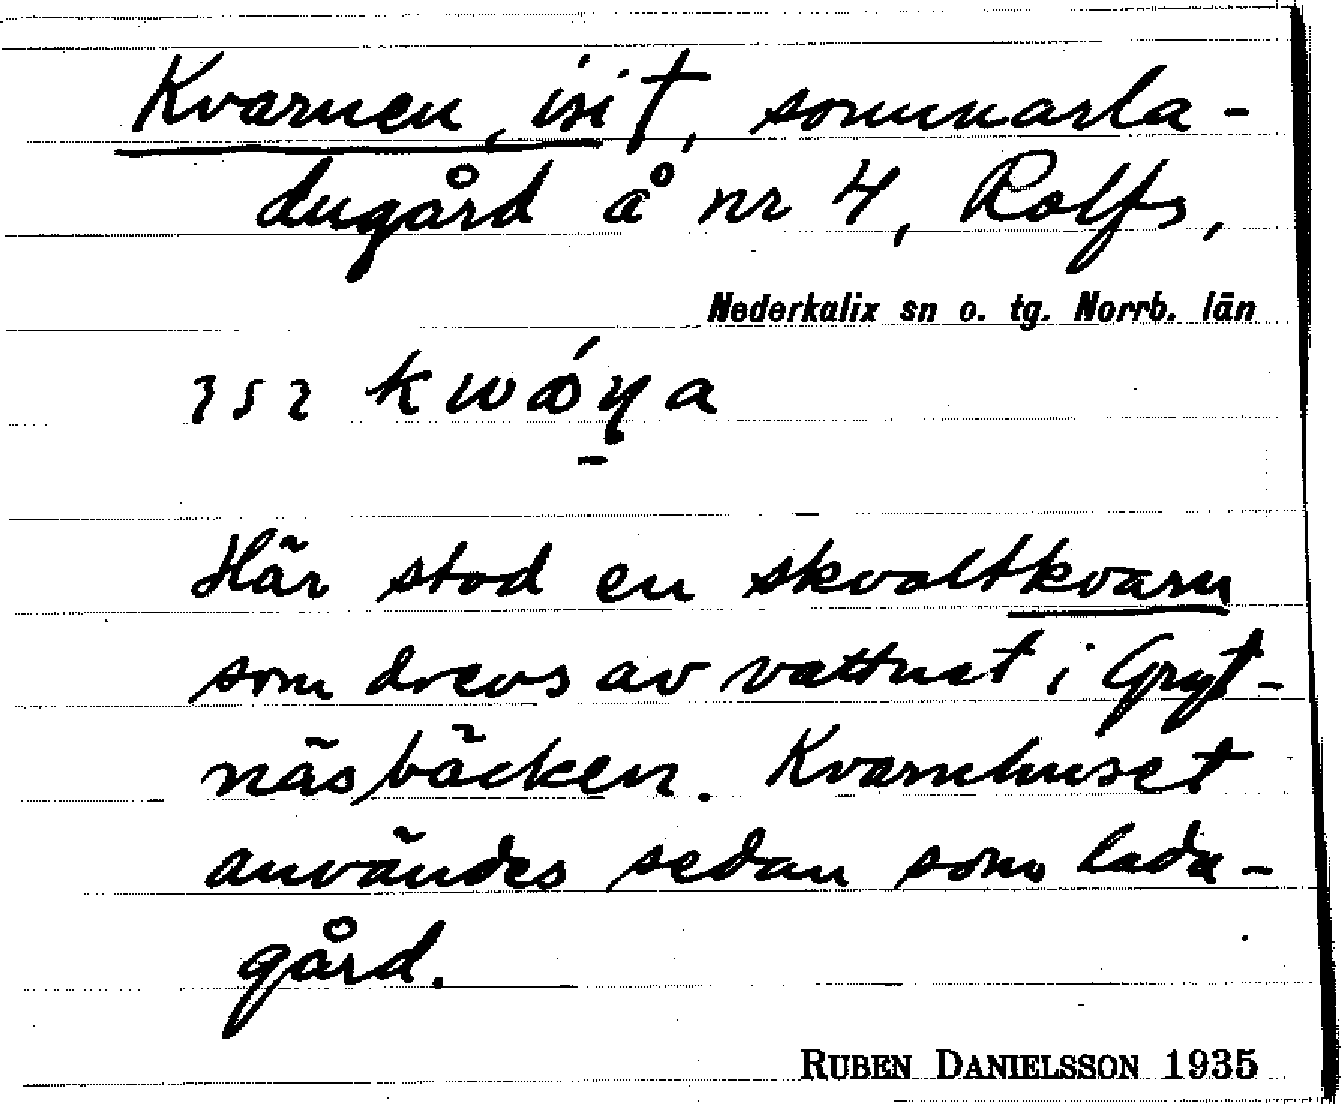 Kvarnen, isit, sommarla-
dugård å nr 4, Rolfs,
Nederkalix sn o. tg. Norrb. län
Här stod en skvaltkvarn
som drevs av vattnet i Gryt-
näsbäcken. Kvarnhuset
användes sedan som lada-
gård.
RUBEN DANIELSSON 1935